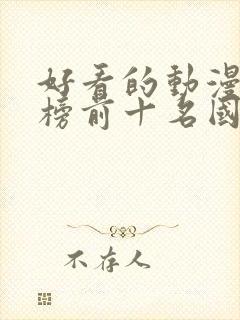 好看的動漫
榜前十名國
不存人